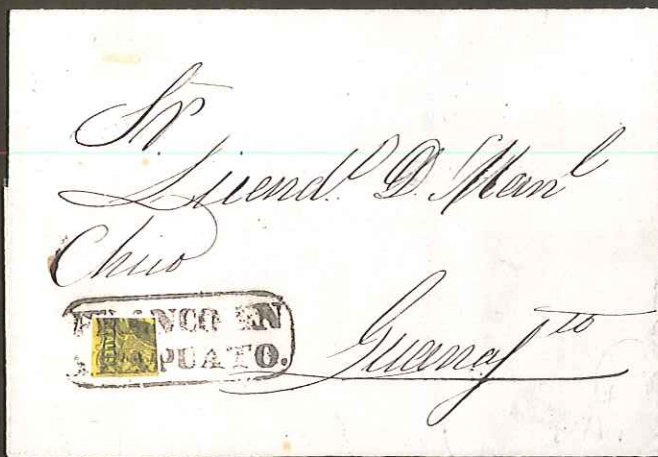 Sr
Licend.º D. Man.l
Chico
FRANCO EN
IRAPUATO.
Guanaj.to